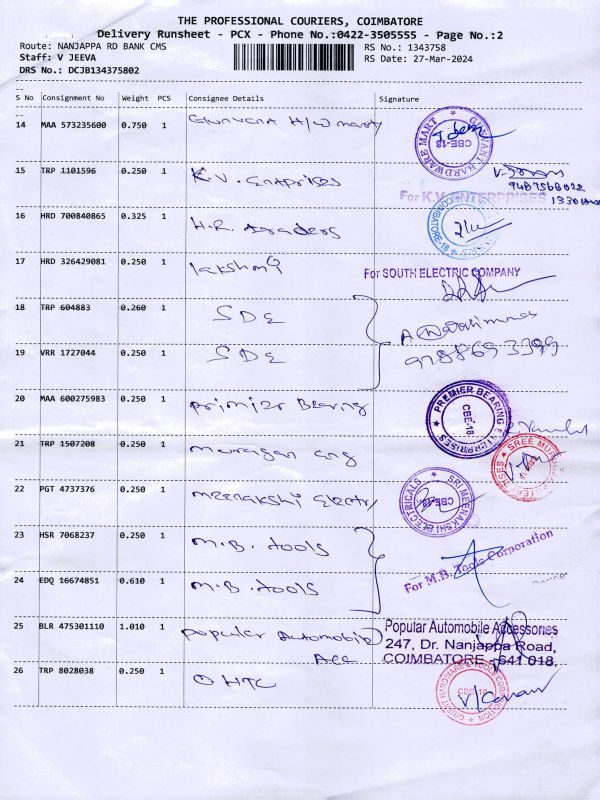 THE PROFESSIONAL COURIERS, COIMBATORE
Delivery Runsheet - PCX - Phone No.:0422-3505555 - Page No.:2
Route: NANJAPPA RD BANK CMS
RS No.: 1343758
Staff: V JEEVA
RS Date: 27-Mar-2024
DRS No.: DCJB134375802
S No Consignment No Weight PCS Consignee Details Signature
14 MAA 573235600 0.750 1 H/W mart
HARDWARE MART CBE-18
15 TRP 1101596 0.250 1 K.V. Entprises
For K.V. ENTERPRISES
9487568022
1330
16 HRD 700840865 0.325 1 H.R. Traders
COIMBATORE-18
17 HRD 326429081 0.250 1 lakshmi
For SOUTH ELECTRIC COMPANY
18 TRP 604883 0.260 1 SDE
19 VRR 1727044 0.250 1 SDE
9788693399
20 MAA 600275983 0.250 1 primier Bearing
PREMIER BEARING ENTERPRISES CBE-18
21 TRP 1507208 0.250 1 murugan eng
SREE
22 PGT 4737376 0.250 1 meenakshi Electry
SRI MEENAKSHI ELECTRICALS CBE-18
23 HSR 7068237 0.250 1 M.B. tools
For M.B. Tools Corporation
24 EDQ 16674851 0.610 1 M.B. tools
25 BLR 475301110 1.010 1 popular Automobile
Acc
Popular Automobile Accessories
247, Dr. Nanjappa Road,
COIMBATORE - 641 018.
26 TRP 8028038 0.250 1 OHTC
HARDWARE & TOOLS CORPORATION CBE-18